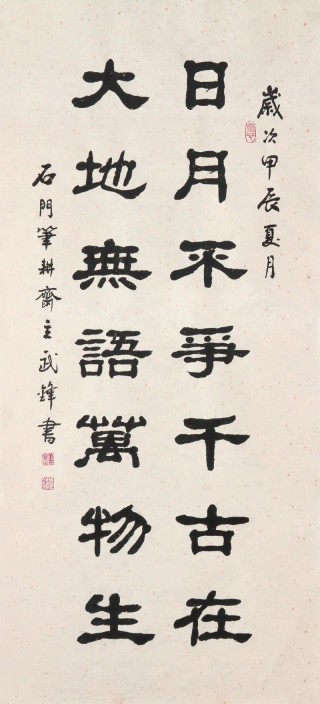 歲次甲辰夏月
日月不爭千古在
大地無語萬物生
石門筆耕齋主武鋒書